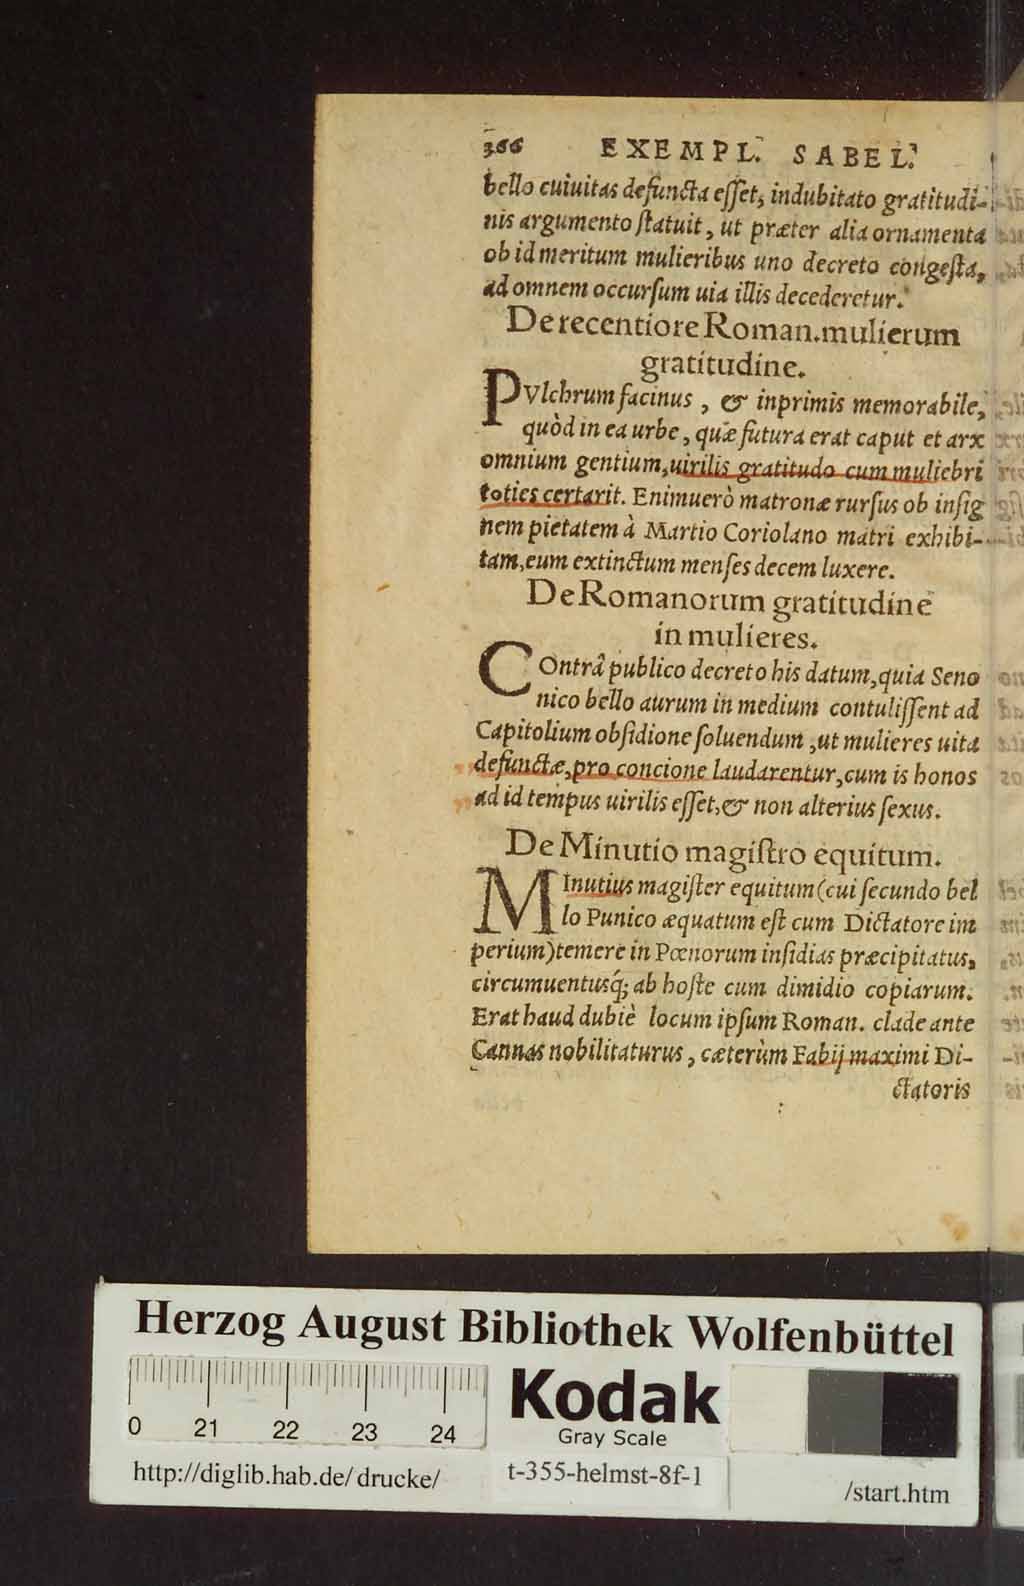 366 EXEMPL. SABEL.
bello cuiuitas defuncta eſſet, indubitato gratitudi-
nis argumento ſtatuit, ut præter alia ornamenta
ob id meritum mulieribus uno decreto congeſta,
ad omnem occurſum uia illis decederetur.
De recentiore Roman. mulierum
gratitudine.
PVlchrum facinus, & inprimis memorabile,
quòd in ea urbe, quæ futura erat caput et arx
omnium gentium, uirilis gratitudo cum muliebri
toties certarit. Enimuerò matronæ rurſus ob inſig
nem pietatem à Martio Coriolano matri exhibi-
tam, eum extinctum menſes decem luxere.
De Romanorum gratitudine
in mulieres.
COntrâ publico decreto his datum, quia Seno
nico bello aurum in medium contuliſſent ad
Capitolium obſidione ſoluendum, ut mulieres uita
defunctæ, pro concione laudarentur, cum is honos
ad id tempus uirilis eſſet, & non alterius ſexus.
De Minutio magiſtro equitum.
MInutius magiſter equitum (cui ſecundo bel
lo Punico æquatum eſt cum Dictatore im
perium) temere in Pœnorum inſidias præcipitatus,
circumuentusq́; ab hoſte cum dimidio copiarum.
Erat haud dubiè locum ipſum Roman. clade ante
Cannas nobilitaturus, cæterùm Fabij maximi Di-
ctatoris
Herzog August Bibliothek Wolfenbüttel
0 21 22 23 24
Kodak
Gray Scale
http://diglib.hab.de/drucke/ t-355-helmst-8f-1 /start.htm